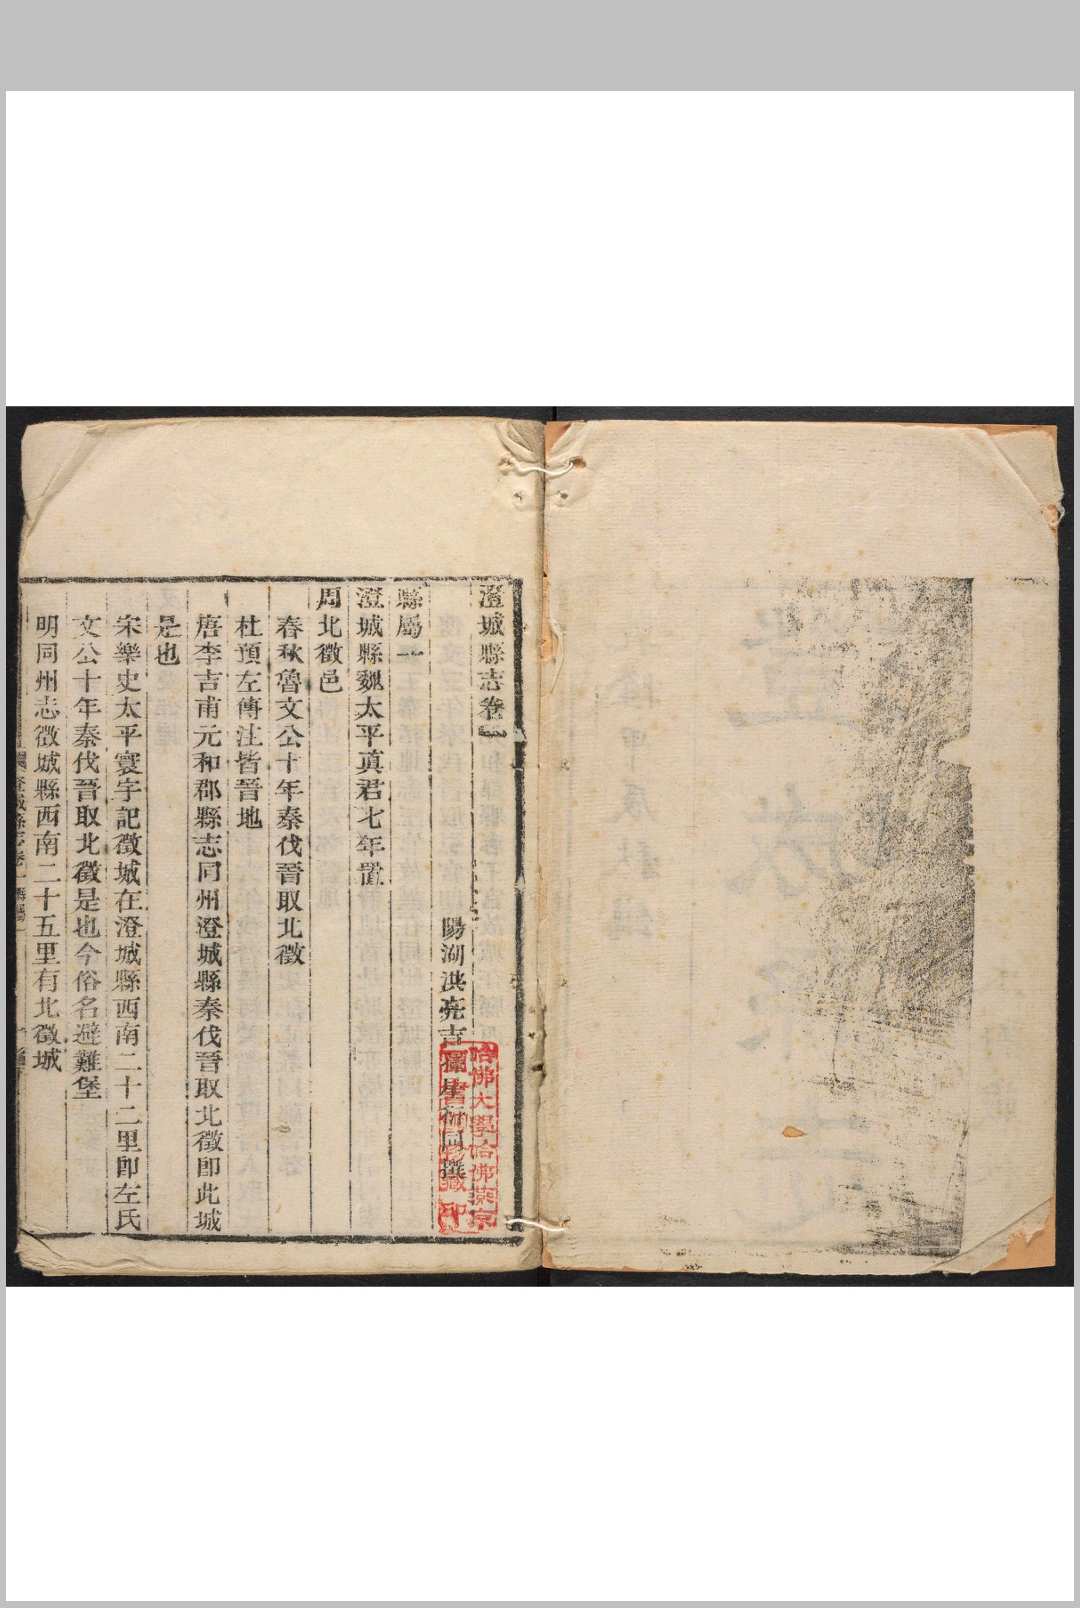 澄城縣志卷一
陽湖洪亮吉孫星衍同撰
縣屬一
澄城縣魏太平真君七年置
周北徵邑
春秋魯文公十年秦伐晉取北徵
杜預左傳注皆晉地
唐李吉甫元和郡縣志同州澄城縣秦伐晉取北徵卽此城
是也
宋樂史太平寰宇記徵城在澄城縣西南二十二里卽左氏
文公十年秦伐晉取北徵是也今俗名避難堡
明同州志徵城縣西南二十五里有北徵城
哈佛大學哈佛燕京
圖書館珍藏印